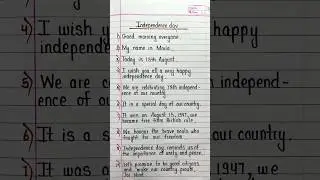 Independence day
1) Good morning everyone.
2) My name is Maria.
3) Today is 15th August.
4) I wish you all a very happy
independence day.
5) We are celebrating 78th independ-
ence of our country.
6) It is a special day of our country.
7) It was on August 15, 1947, we
became free from British rule.
8) We honour the brave souls who
fought for our freedom.
9) Independence day reminds us of
the importance of unity and peace.
10) Let's promise to be good citizens
and make our country proud.
Jai Hind
4) I wish you
independence
5) We are ce
ence of ou
6) It is a s
7) It was
very happy
independ-
our country.
1947, we